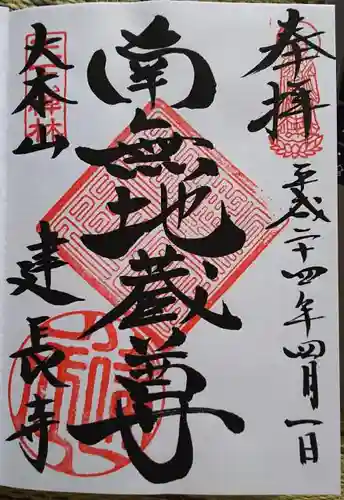 奉拝
平成二十四年四月一日
南無地蔵尊
大本山
建長寺